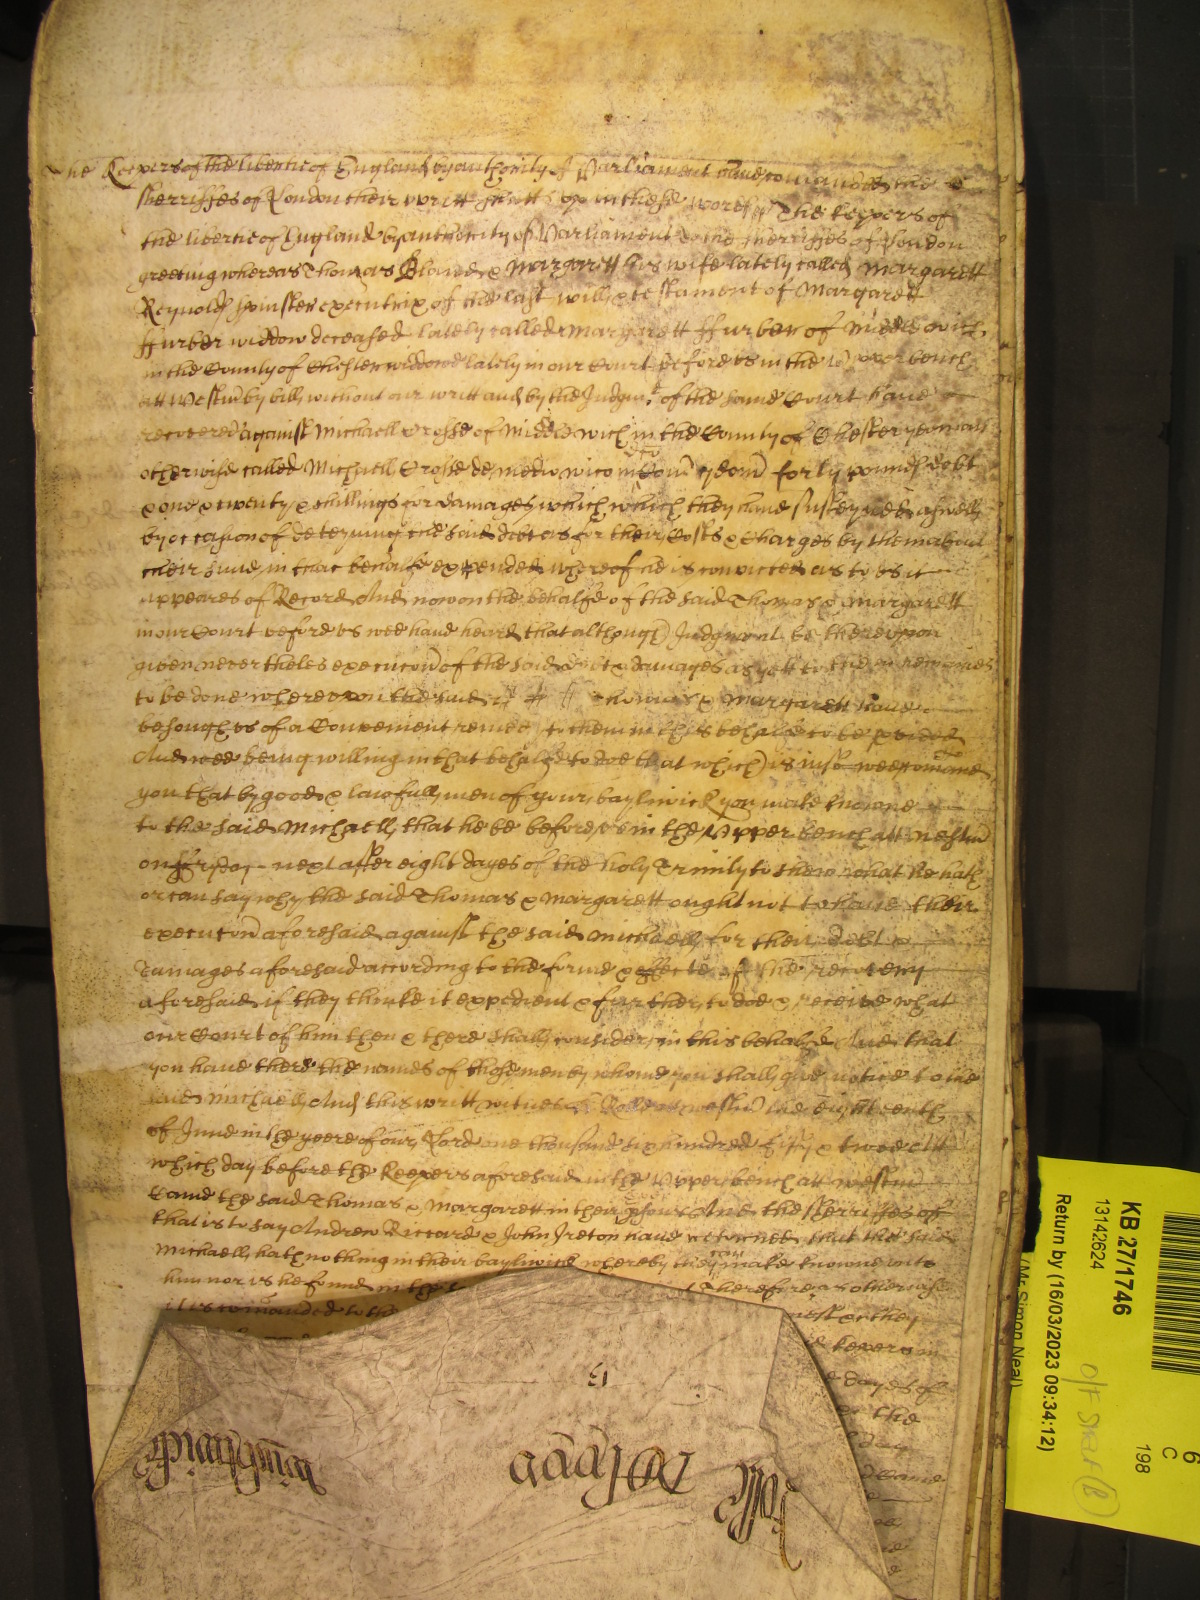 The Keepers of the libertie of England by authority of Parliament have comanded the
sherriffes of London their writt shutt up in these wordes The keepers of
the libertie of England by authority of Parliament to the sherriffes of London
greeting whereas Thomas Bland & Margarett his wife lately called Margarett
Reynolds spinster executrix of the last will & testament of Margarett
ffurber widdow deceased lately called Margarett ffurber of Middlewich
in the County of Chester widdow lately in our Court before us in the upper bench
att Westm by bill without our writt and by the Judgmt of the same Court have
recovered against Michaell Crosse of Middlewich in the County of Chester yeoman
otherwise called Michaell Crosse de medio wico in Com forty pounds debt
& one & twenty shillings for damages which which they have susteyned aswell
by occasion of deteyning the said debt as for their Costs & Charges by them about
their suite in that behalfe expended whereof he is convicted as to us it
appeares of Record And now on the behalfe of the said Thomas & Margarett
in our Court before us wee have heard that although Judgment be thereupon
given nevertheles execucon of the said debt & damages as yett to them remaines
to be done whereupon the said Thomas & Margarett have
besought us of a Convenient remedy to them in this behalfe to be provided
And wee being willing in that behalfe to doe that which is just wee comand
you that by good & lawfull men of your baylwick you make knowne
to the said Michaell that he be before us in the Upper bench att Westm
on ffryday next after eight dayes of the holy Trinity to shew what he hath
or can say why the said Thomas & Margarett ought not to have their
execucon aforesaid against the said Michaell for their debt &
Damages aforesaid according to the forme & effecte of the recovery
aforesaid if they thinke it expedient & further to doe & receive what
our Court of him then & there shall consider in this behalfe And that
you have there the names of those men by whome you shall give notice to the
said Michaell And this writt witnes Rolle att Westm the eighteenth
of June in the yeere of our Lord one thousand six hundred fifty & twoe Att
which day before the Keepers aforesaid in the Upper bench att Westm
Came the said Thomas & Margarett in their And the sherriffes of
that is to say Andrew Riccard & John Ireton have retorned that the said
Michaell hath nothing in their baylwick whereby they can make knowne unto
him nor is he found in the Therefore as otherwise
it is comanded to the they
keepers in
dayes of
the
day
Came
13
Rolle
KB 27/1746
13142624
Return by (16/03/2023 09:34:12)
(Mr Simon Neal)
6
C
198
O/F Shelf (B)